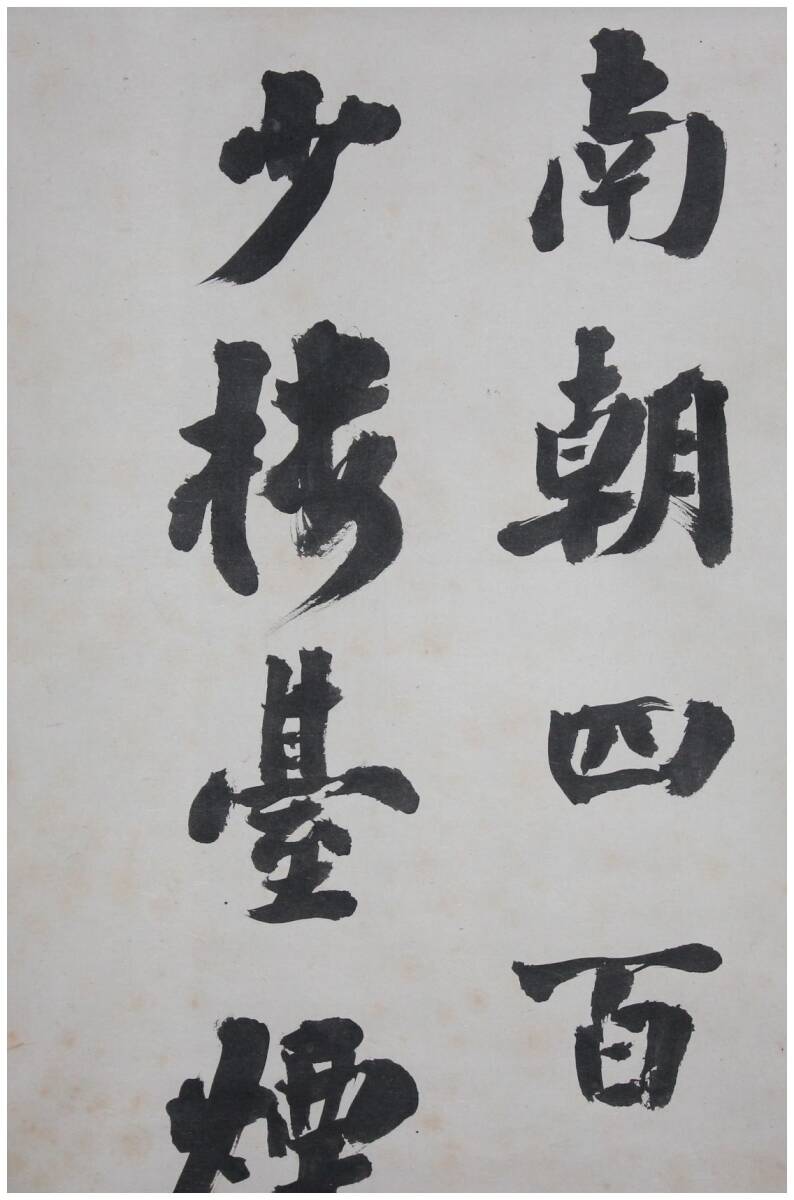 南朝四百
少樓臺煙